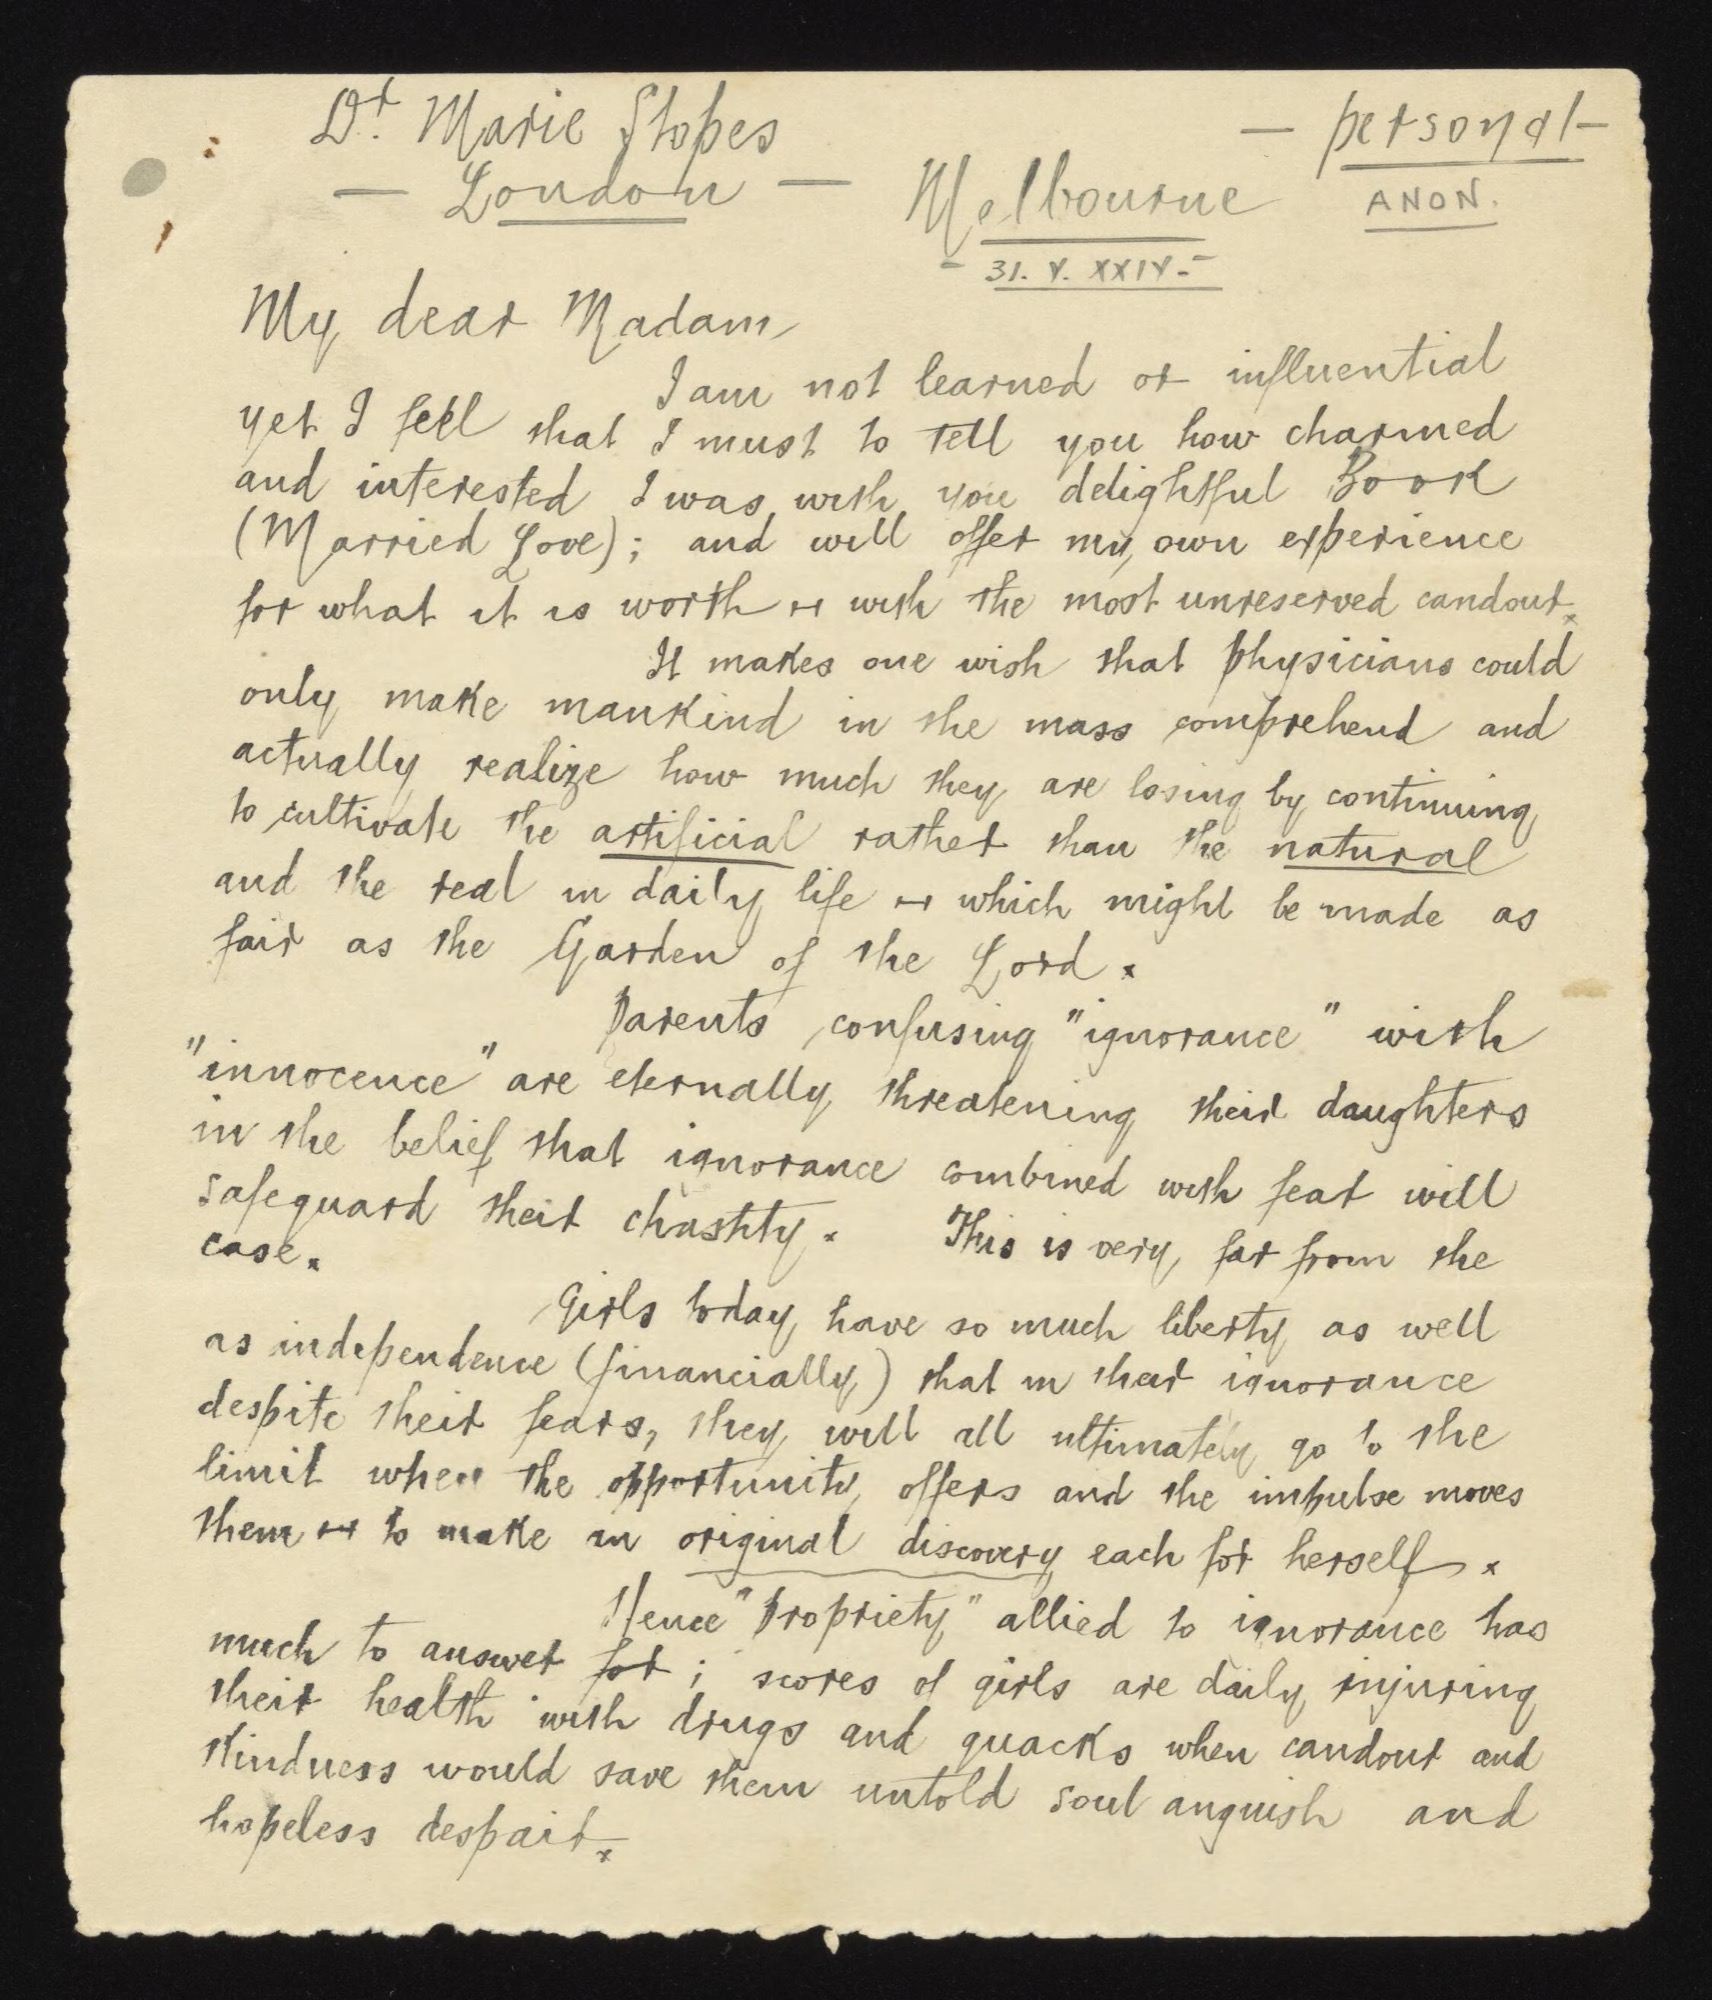 Dr. Marie Stopes
— London —
— personal —
ANON.
Melbourne
- 31. V. XXIV. -
My dear Madam,
I am not learned or influential
yet I feel that I must to tell you how charmed
and interested I was with you delightful Book
(Married Love); and will offer my own experience
for what it is worth — with the most unreserved candour.
It makes one wish that physicians could
only make mankind in the mass comprehend and
actually realize how much they are losing by continuing
to cultivate the artificial rather than the natural
and the real in daily life — which might be made as
fair as the Garden of the Lord.
Parents confusing "ignorance" with
"innocence" are eternally threatening their daughters
in the belief that ignorance combined with fear will
safeguard their chastity. This is very far from the
case.
Girls today have so much liberty as well
as independence (financially) that in their ignorance
despite their fears, they will all ultimately go to the
limit when the opportunity offers and the impulse moves
them — to make in original discovery each for herself.
Hence "propriety" allied to ignorance has
much to answer for; scores of girls are daily injuring
their health with drugs and quacks when candour and
kindness would save them untold soul anguish and
hopeless despair.